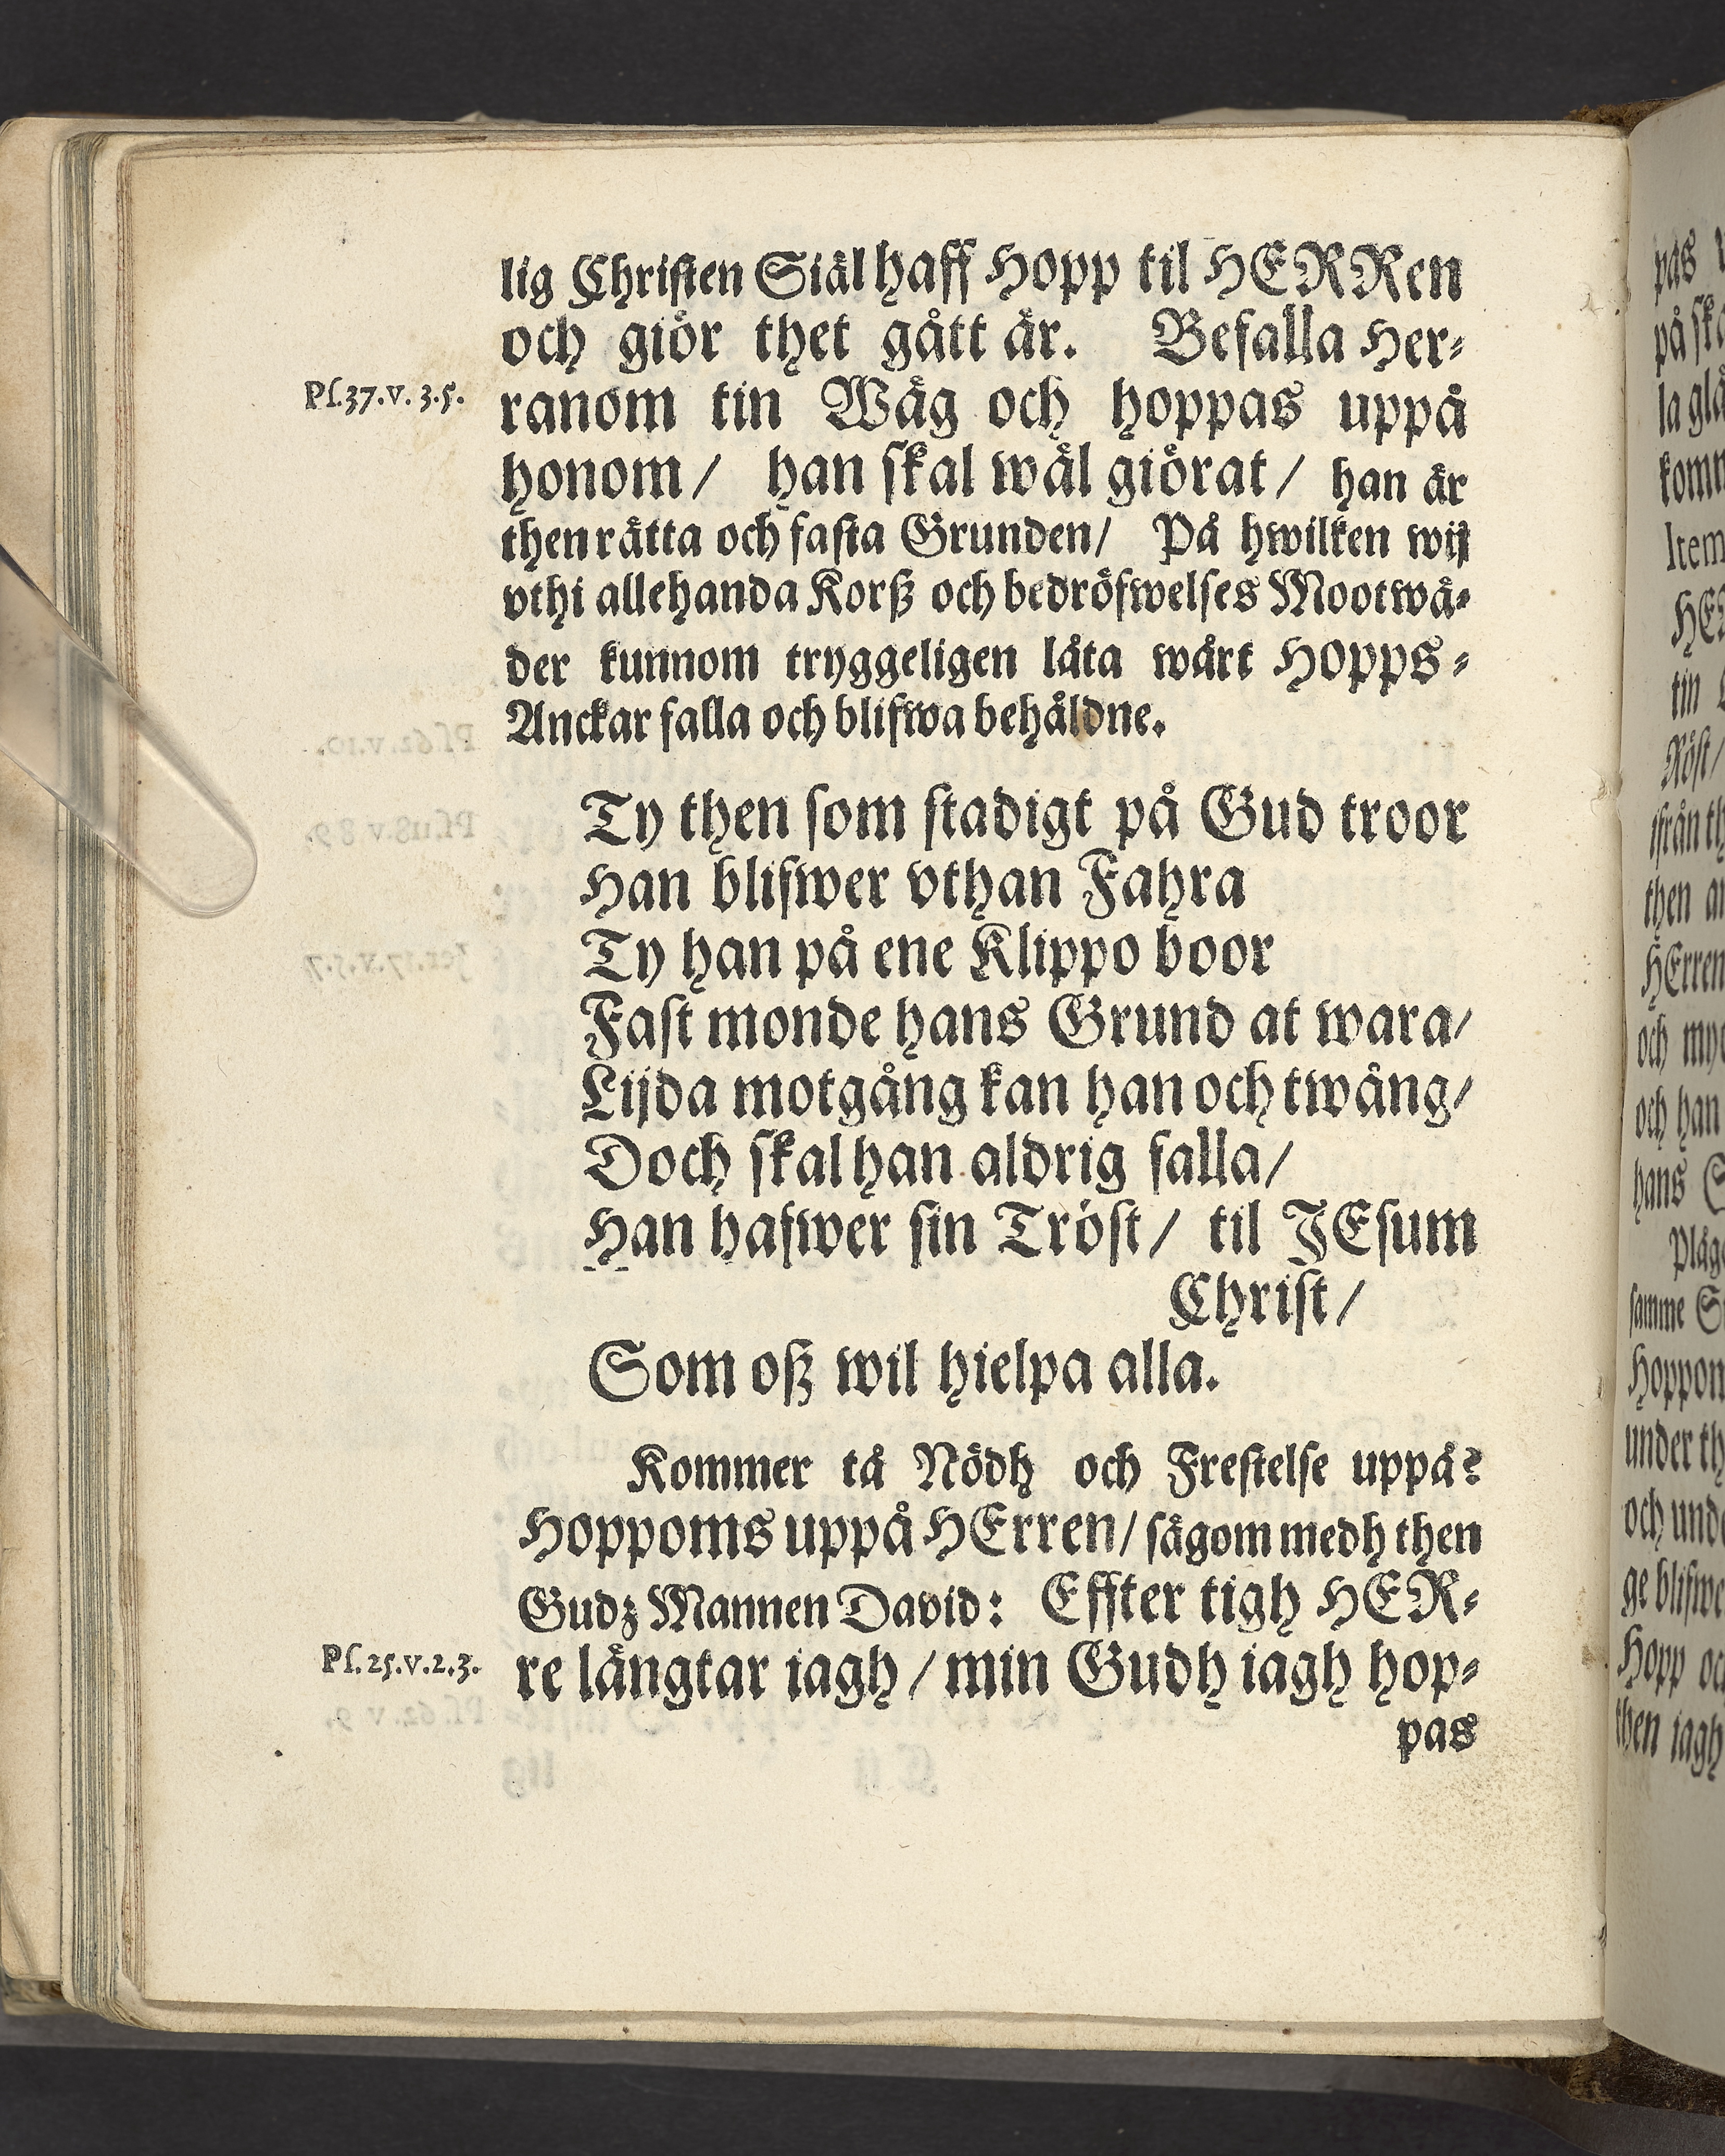 lig Christen Siäl haff Hopp til HERRen
och giör thet gått är. Befalla Her-
Ps.37.v.3.5.
ranom tin Wäg och hoppas uppå
honom/ han skal wäl giörat/ han är
then rätta och fasta Grunden/ På hwilken wij
vthi allehanda Korß och bedröfwelses Mootwä-
der kunnom tryggeligen låta wårt Hopps-
Anckar falla och blifwa behåldne.
Ty then som stadigt på Gud troor
Han blifwer vthan Fahra
Ty han på ene Klippo boor
Fast monde hans Grund at wara/
Lijda motgång kan han och twång/
Doch skal han aldrig falla/
Han hafwer sin Tröst/ til JEsum
Christ/
Som oß wil hielpa alla.
Kommer tå Nödh och Frestelse uppå?
Hoppoms uppå HErren/ sägom medh then
Gudz Mannen David: Effter tigh HER-
Ps.25.v.2.3.
re längtar iagh/ min Gudh iagh hop-
pas